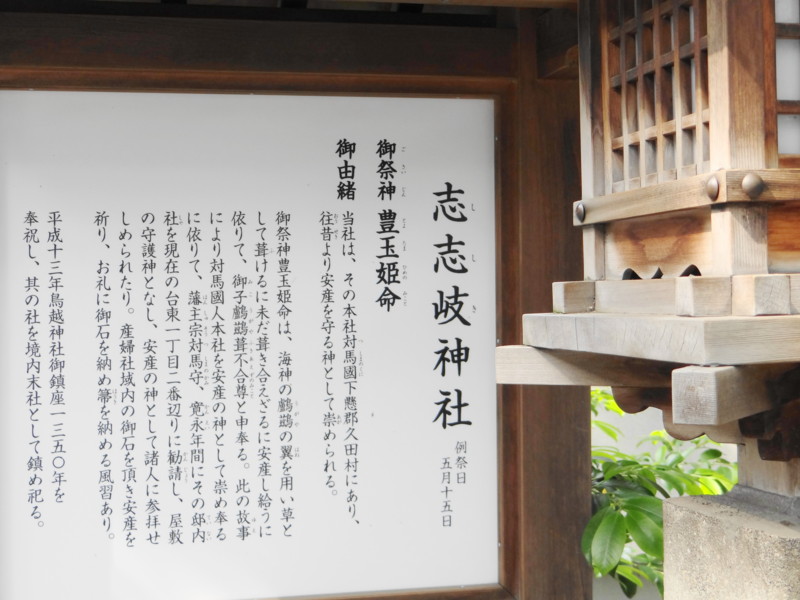 志志岐神社
例祭日
五月十五日
御祭神 豊玉姫命
御由緒
当社は、その本社対馬國下懸郡久田村にあり、
往昔より安産を守る神として崇められる。
御祭神豊玉姫命は、海神の鸕鷀の翼を用い草と
して葺けるに未だ葺き合えざるに安産し給うに
依りて、御子鸕鷀葺不合尊と申奉る。此の故事
により対馬國人本社を安産の神として崇め奉る
に依りて、藩主宗対馬守、寛永年間にその邸内
社を現在の台東一丁目二番辺りに勧請し、屋敷
の守護神となし、安産の神として諸人に参拝せ
しめられたり。産婦社域内の御石を頂き安産を
祈り、お礼に御石を納め箒を納める風習あり。
平成十三年鳥越神社御鎮座一三五〇年を
奉祝し、其の社を境内末社として鎮め祀る。